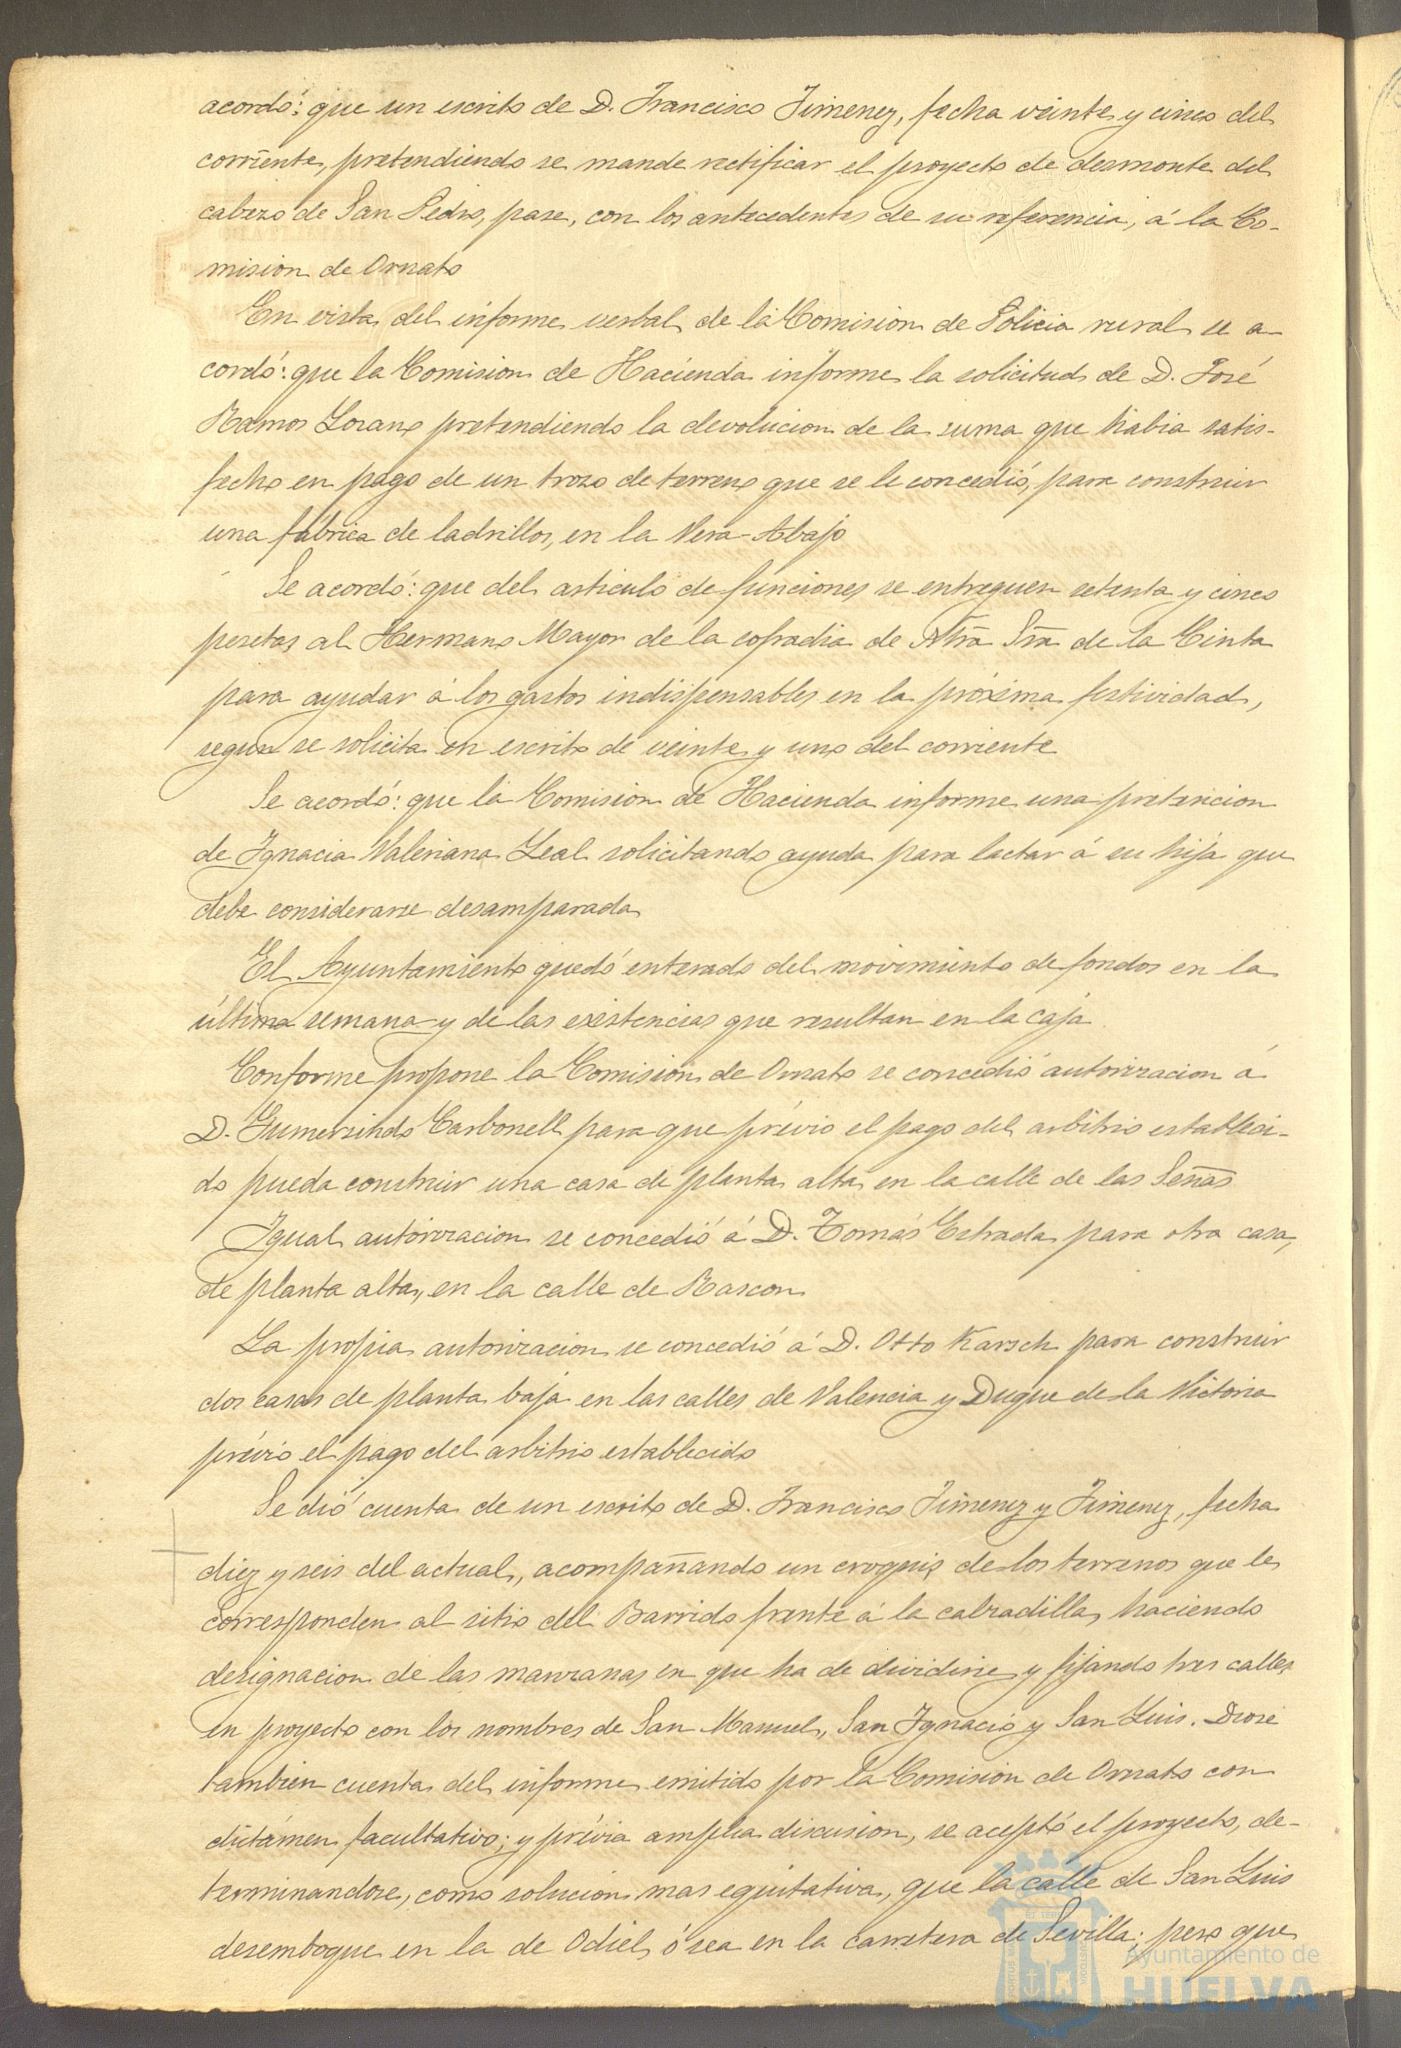 acordó: que un escrito de D. Francisco Jimenez, fecha veinte y cinco del
corriente, pretendiendo se mande rectificar el proyecto de desmonte del
cabezo de San Pedro, pase, con los antecedentes de su referencia, á la Co-
mision de Ornato
En vista del informe verbal de la Comision de Policia rural se a-
cordó: que la Comision de Hacienda informe la solicitud de D. José
Ramos Lozano pretendiendo la devolucion de la suma que habia satis-
fecho en pago de un trozo de terreno que se le concedió, para construir
una fabrica de ladrillos, en la Vera-Abajo
Se acordó: que del articulo de funciones se entreguen setenta y cinco
pesetas al Hermano Mayor de la cofradia de Ntra Sra de la Cinta
para ayudar á los gastos indispensables en la próxima festividad,
segun se solicita en escrito de veinte y uno del corriente
Se acordó: que la Comision de Hacienda informe una pretencion
de Ignacia Valeriana Leal solicitando ayuda para lactar á su hija que
debe considerarse desamparada
El Ayuntamiento quedó enterado del movimiento de fondos en la
última semana y de las existencias que resultan en la caja
Conforme propone la Comision de Ornato se concedió autorizacion á
D. Gumersindo Carbonell para que prévio el pago del arbitrio estableci-
do pueda construir una casa de planta alta en la calle de las Señas
Igual autorizacion se concedió á D. Tomás Estrada para otra casa,
de planta alta, en la calle de Rascon
La propia autorizacion se concedió á D. Otto Karsch para construir
dos casas de planta baja en las calles de Valencia y Duque de la Victoria
prévio el pago del arbitrio establecido
Se dió cuenta de un escrito de D. Francisco Jimenez y Jimenez, fecha
diez y seis del actual, acompañando un croquis de los terrenos que le
corresponden al sitio del Barrido frente á la calzadilla, haciendo
designacion de las manzanas en que ha de dividirse y fijando tres calles
en proyecto con los nombres de San Manuel, San Ignacio y San Luis. Diose
tambien cuenta del informe emitido por la Comision de Ornato con
dictámen facultativo; y prévia amplia discusion, se aceptó el proyecto, de-
terminandose, como solucion mas equitativa, que la calle de San Luis
desemboque en la de Odiel, ó sea en la carretera de Sevilla; pero que
Ayuntamiento de
HUELVA